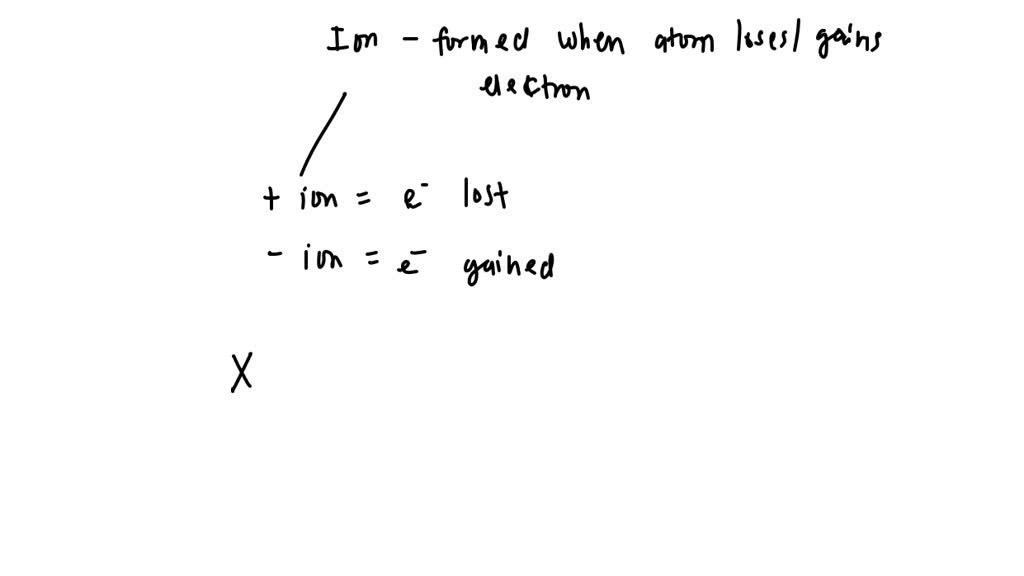 Ion - formed when atom loses/gains
electron
+ ion = e⁻ lost
- ion = e⁻ gained
X